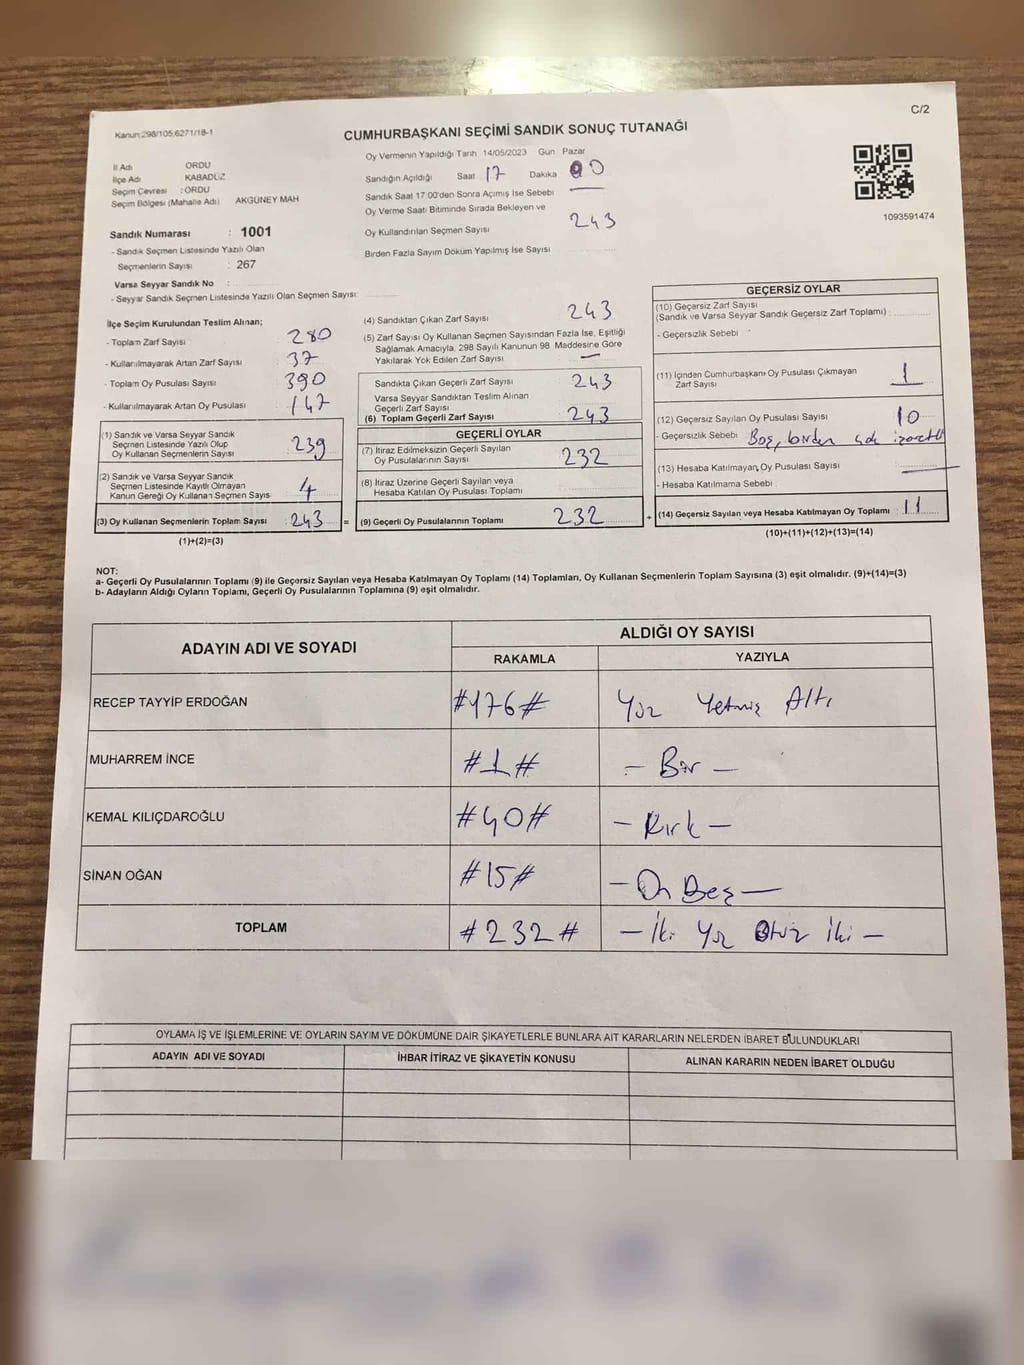 C/2
Kanun:298/105;6271/18-1
CUMHURBAŞKANI SEÇİMİ SANDIK SONUÇ TUTANAĞI
İl Adı ORDU
İlçe Adı KABADÜZ
Seçim Çevresi : ORDU
Seçim Bölgesi (Mahalle Adı) AKGÜNEY MAH
Sandık Numarası : 1001
- Sandık Seçmen Listesinde Yazılı Olan
Seçmenlerin Sayısı : 267
Varsa Seyyar Sandık No :
- Seyyar Sandık Seçmen Listesinde Yazılı Olan Seçmen Sayısı:
Oy Vermenin Yapıldığı Tarih 14/05/2023 Gün Pazar
Sandığın Açıldığı Saat 17 Dakika 00
Sandık Saat 17:00'den Sonra Açımış İse Sebebi
Oy Verme Saati Bitiminde Sırada Bekleyen ve
Oy Kullandırılan Seçmen Sayısı 243
Birden Fazla Sayım Döküm Yapılmış İse Sayısı
1093591474
İlçe Seçim Kurulundan Teslim Alınan;
- Toplam Zarf Sayısı 280
- Kullanılmayarak Artan Zarf Sayısı 37
- Toplam Oy Pusulası Sayısı 390
- Kullanılmayarak Artan Oy Pusulası 147
(1) Sandık ve Varsa Seyyar Sandık
Seçmen Listesinde Yazılı Olup
Oy Kullanan Seçmenlerin Sayısı 239
(2) Sandık ve Varsa Seyyar Sandık
Seçmen Listesinde Kayıtlı Olmayan
Kanun Gereği Oy Kullanan Seçmen Sayıs 4
(3) Oy Kullanan Seçmenlerin Toplam Sayısı : 243 =
(1)+(2)=(3)
(4) Sandıktan Çıkan Zarf Sayısı 243
(5) Zarf Sayısı Oy Kullanan Seçmen Sayısından Fazla İse, Eşitliği
Sağlamak Amacıyla, 298 Sayılı Kanunun 98. Maddesine Göre
Yakılarak Yok Edilen Zarf Sayısı —
Sandıkta Çıkan Geçerli Zarf Sayısı 243
Varsa Seyyar Sandıktan Teslim Alınan
Geçerli Zarf Sayısı
(6) Toplam Geçerli Zarf Sayısı 243
GEÇERLİ OYLAR
(7) İtiraz Edilmeksizin Geçerli Sayılan
Oy Pusulalarının Sayısı 232
(8) İtiraz Üzerine Geçerli Sayılan veya
Hesaba Katılan Oy Pusulası Toplamı
(9) Geçerli Oy Pusulalarının Toplamı 232 +
GEÇERSİZ OYLAR
(10) Geçersiz Zarf Sayısı
(Sandık ve Varsa Seyyar Sandık Geçersiz Zarf Toplamı) :
- Geçersizlik Sebebi :
(11) İçinden Cumhurbaşkanı Oy Pusulası Çıkmayan
Zarf Sayısı 1
(12) Geçersiz Sayılan Oy Pusulası Sayısı : 10
- Geçersizlik Sebebi Boş, birden çok
(13) Hesaba Katılmayan Oy Pusulası Sayısı :
- Hesaba Katılmama Sebebi :
(14) Geçersiz Sayılan veya Hesaba Katılmayan Oy Toplamı : 11
(10)+(11)+(12)+(13)=(14)
NOT:
a- Geçerli Oy Pusulalarının Toplamı (9) ile Geçersiz Sayılan veya Hesaba Katılmayan Oy Toplamı (14) Toplamları, Oy Kullanan Seçmenlerin Toplam Sayısına (3) eşit olmalıdır. (9)+(14)=(3)
b- Adayların Aldığı Oyların Toplamı, Geçerli Oy Pusulalarının Toplamına (9) eşit olmalıdır.
ADAYIN ADI VE SOYADI
ALDIĞI OY SAYISI
RAKAMLA YAZIYLA
RECEP TAYYİP ERDOĞAN #176# Yüz Yetmiş Altı
MUHARREM İNCE #1# — Bir —
KEMAL KILIÇDAROĞLU #40# — Kırk —
SİNAN OĞAN #15# — On Beş —
TOPLAM #232# — İki Yüz Otuz İki —
OYLAMA İŞ VE İŞLEMLERİNE VE OYLARIN SAYIM VE DÖKÜMÜNE DAİR ŞİKAYETLERLE BUNLARA AİT KARARLARIN NELERDEN İBARET BULUNDUKLARI
ADAYIN ADI VE SOYADI İHBAR İTİRAZ VE ŞİKAYETİN KONUSU ALINAN KARARIN NEDEN İBARET OLDUĞU